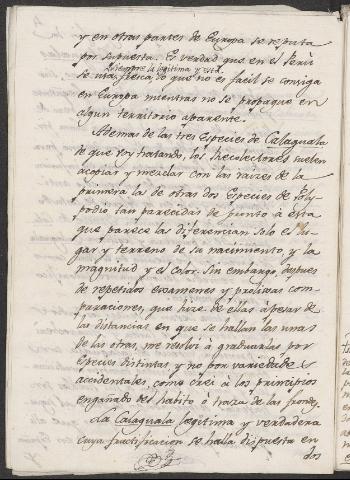 y en otras partes de Europa se reputa
por supuesta. Es verdad que en el Perú
siempre la legitima y está
se usa fresca, lo que no es facil se consiga
en Europa mientras no se propague en
algun territorio aparente.
Ademas de las tres Especies de Calaguala
de que voy tratando, los Recolectores suelen
acopiar y mezclar con las raizes de la
primera la de otras dos Especies de Poly-
podio tan parecidas de punto à esta
que parece la diferencian solo el lu-
gar y terreno de su nacimiento, y la
magnitud y el color. Sin embargo, despues
de repetidos examenes y prolixas com-
paraciones, que hize de ellas à pesar de
las distancias en que se hallan las unas
de las otras, me resolví à graduarlas por
Especies distintas, y no por variedades
accidentales, como crei à los principios
engañado del habito ò traza de las frondes.
La Calaguala legitima y verdadera
cuya fructificacion se halla dispuesta en
dos